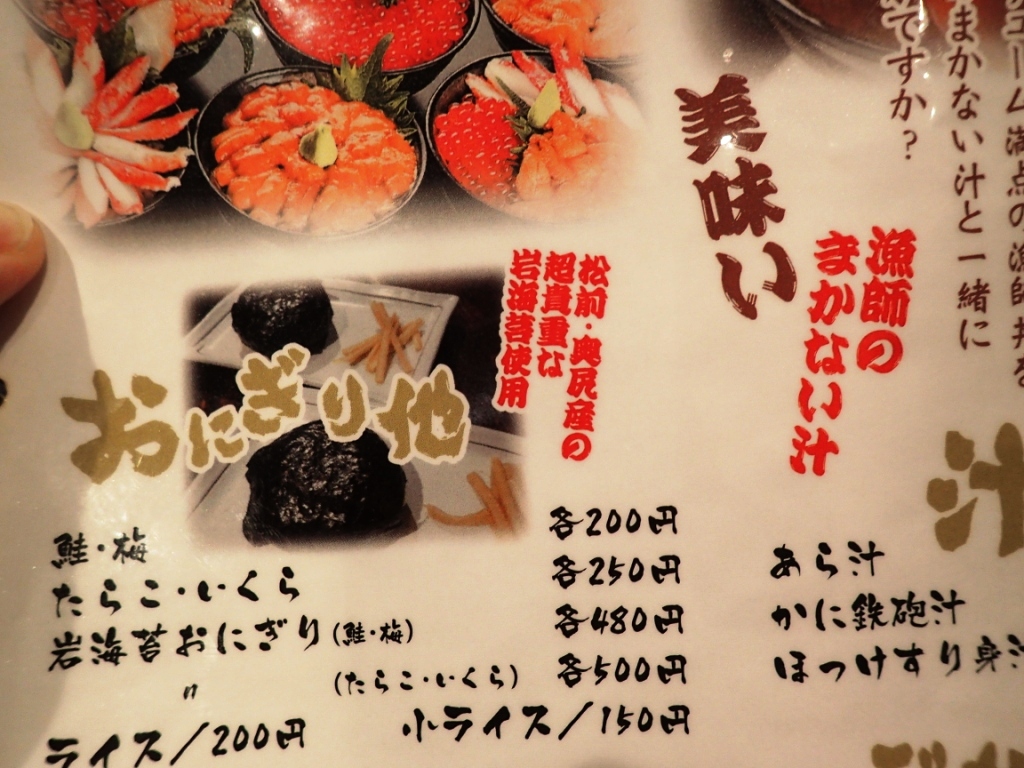 まかない汁と一緒に
ですか？
美味い
漁師の
まかない汁
松前・奥尻産の
超貴重な
岩海苔使用
おにぎり他
鮭・梅 各200円
たらこ・いくら 各250円
岩海苔おにぎり(鮭・梅) 各480円
〃 (たらこ・いくら) 各500円
ライス/200円 小ライス/150円
汁
あら汁
かに鉄砲汁
ほっけすり身汁